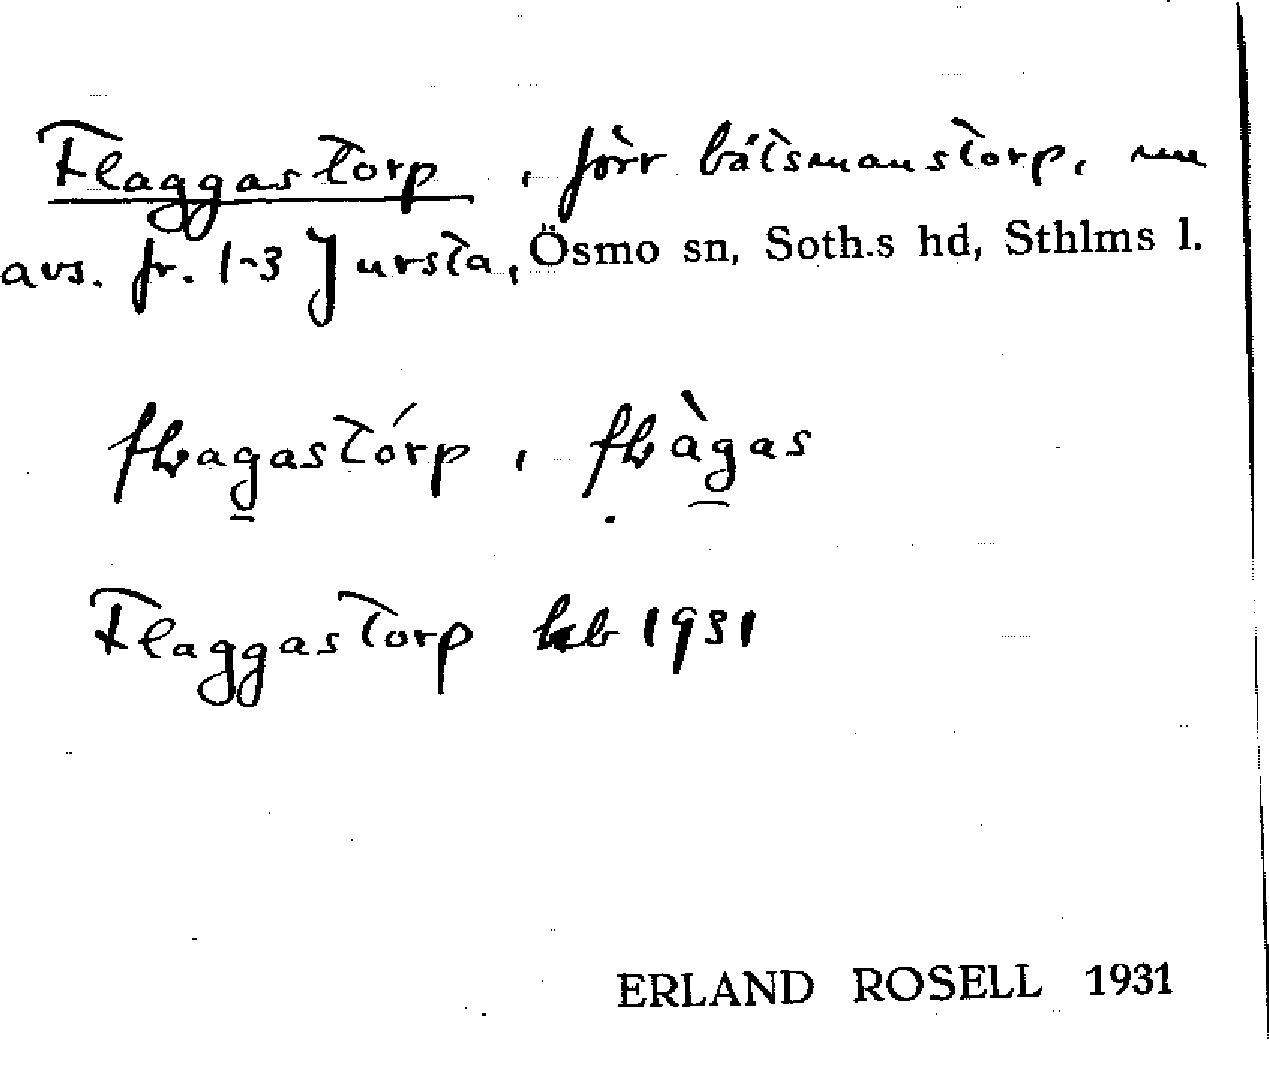 Flaggastorp, förr båtsmanstorp, nu
avs. fr. 1-3 Jursta, Ösmo sn, Soth.s hd, Sthlms l.
Flaggastorp kb 1931
ERLAND ROSELL 1931